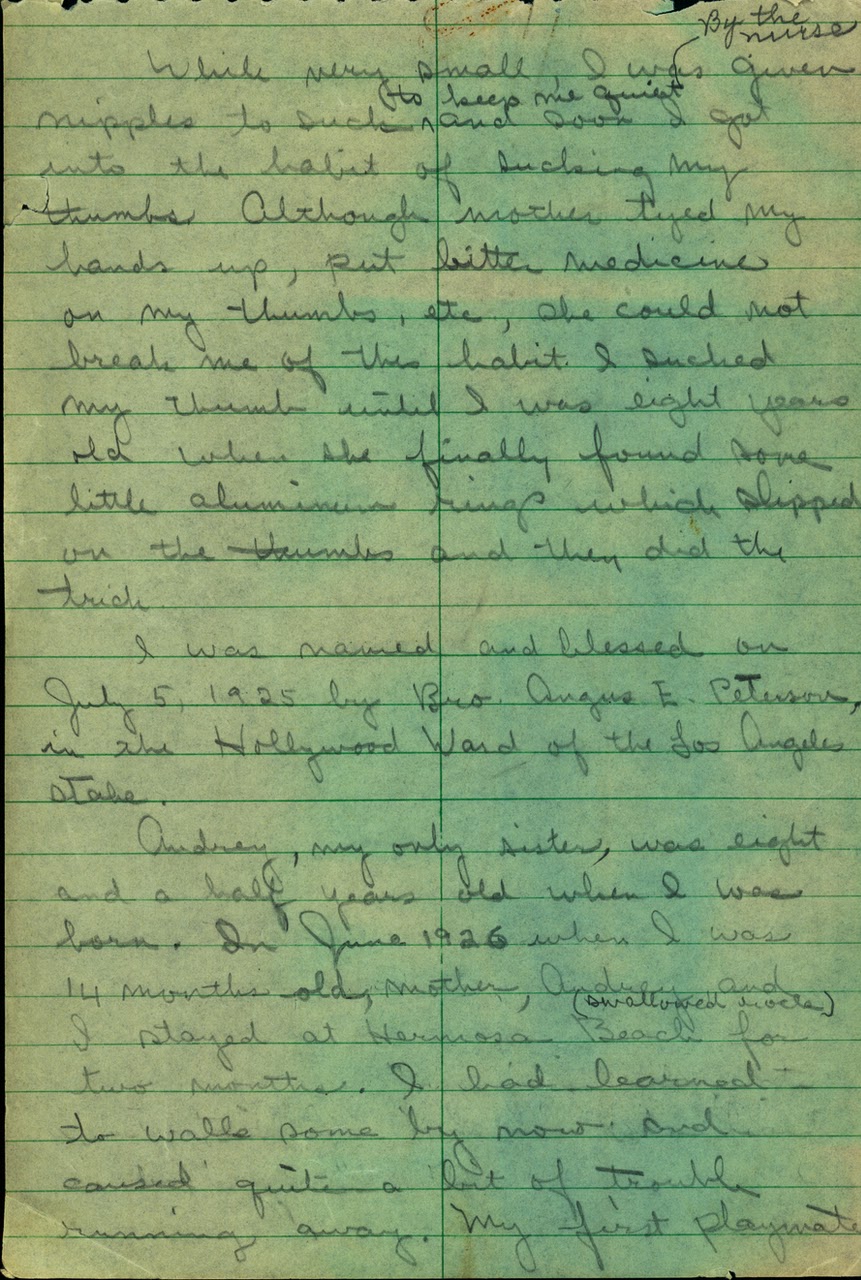 By the
nurse
While very small, I was given
(to keep me quiet
nipples to suck and soon I got
into the habit of sucking my
thumbs. Although mother tyed my
hands up, put bitter medicine
on my thumbs, etc, she could not
break me of this habit. I sucked
my thumb until I was eight years
old when she finally found some
little aluminum rings which slipped
on the thumbs and they did the
trick.
I was named and blessed on
July 5, 1925 by Bro. Angus E. Peterson,
in the Hollywood Ward of the Los Angeles
stake.
Audrey, my only sister, was eight
and a half years old when I was
born. In June 1926 when I was
14 months old, mother, Audrey and
(swallowed rocks)
I stayed at Hermosa Beach for
two months. I had learned
to walk some by now and
caused quite a bit of trouble
running away. My first playmate